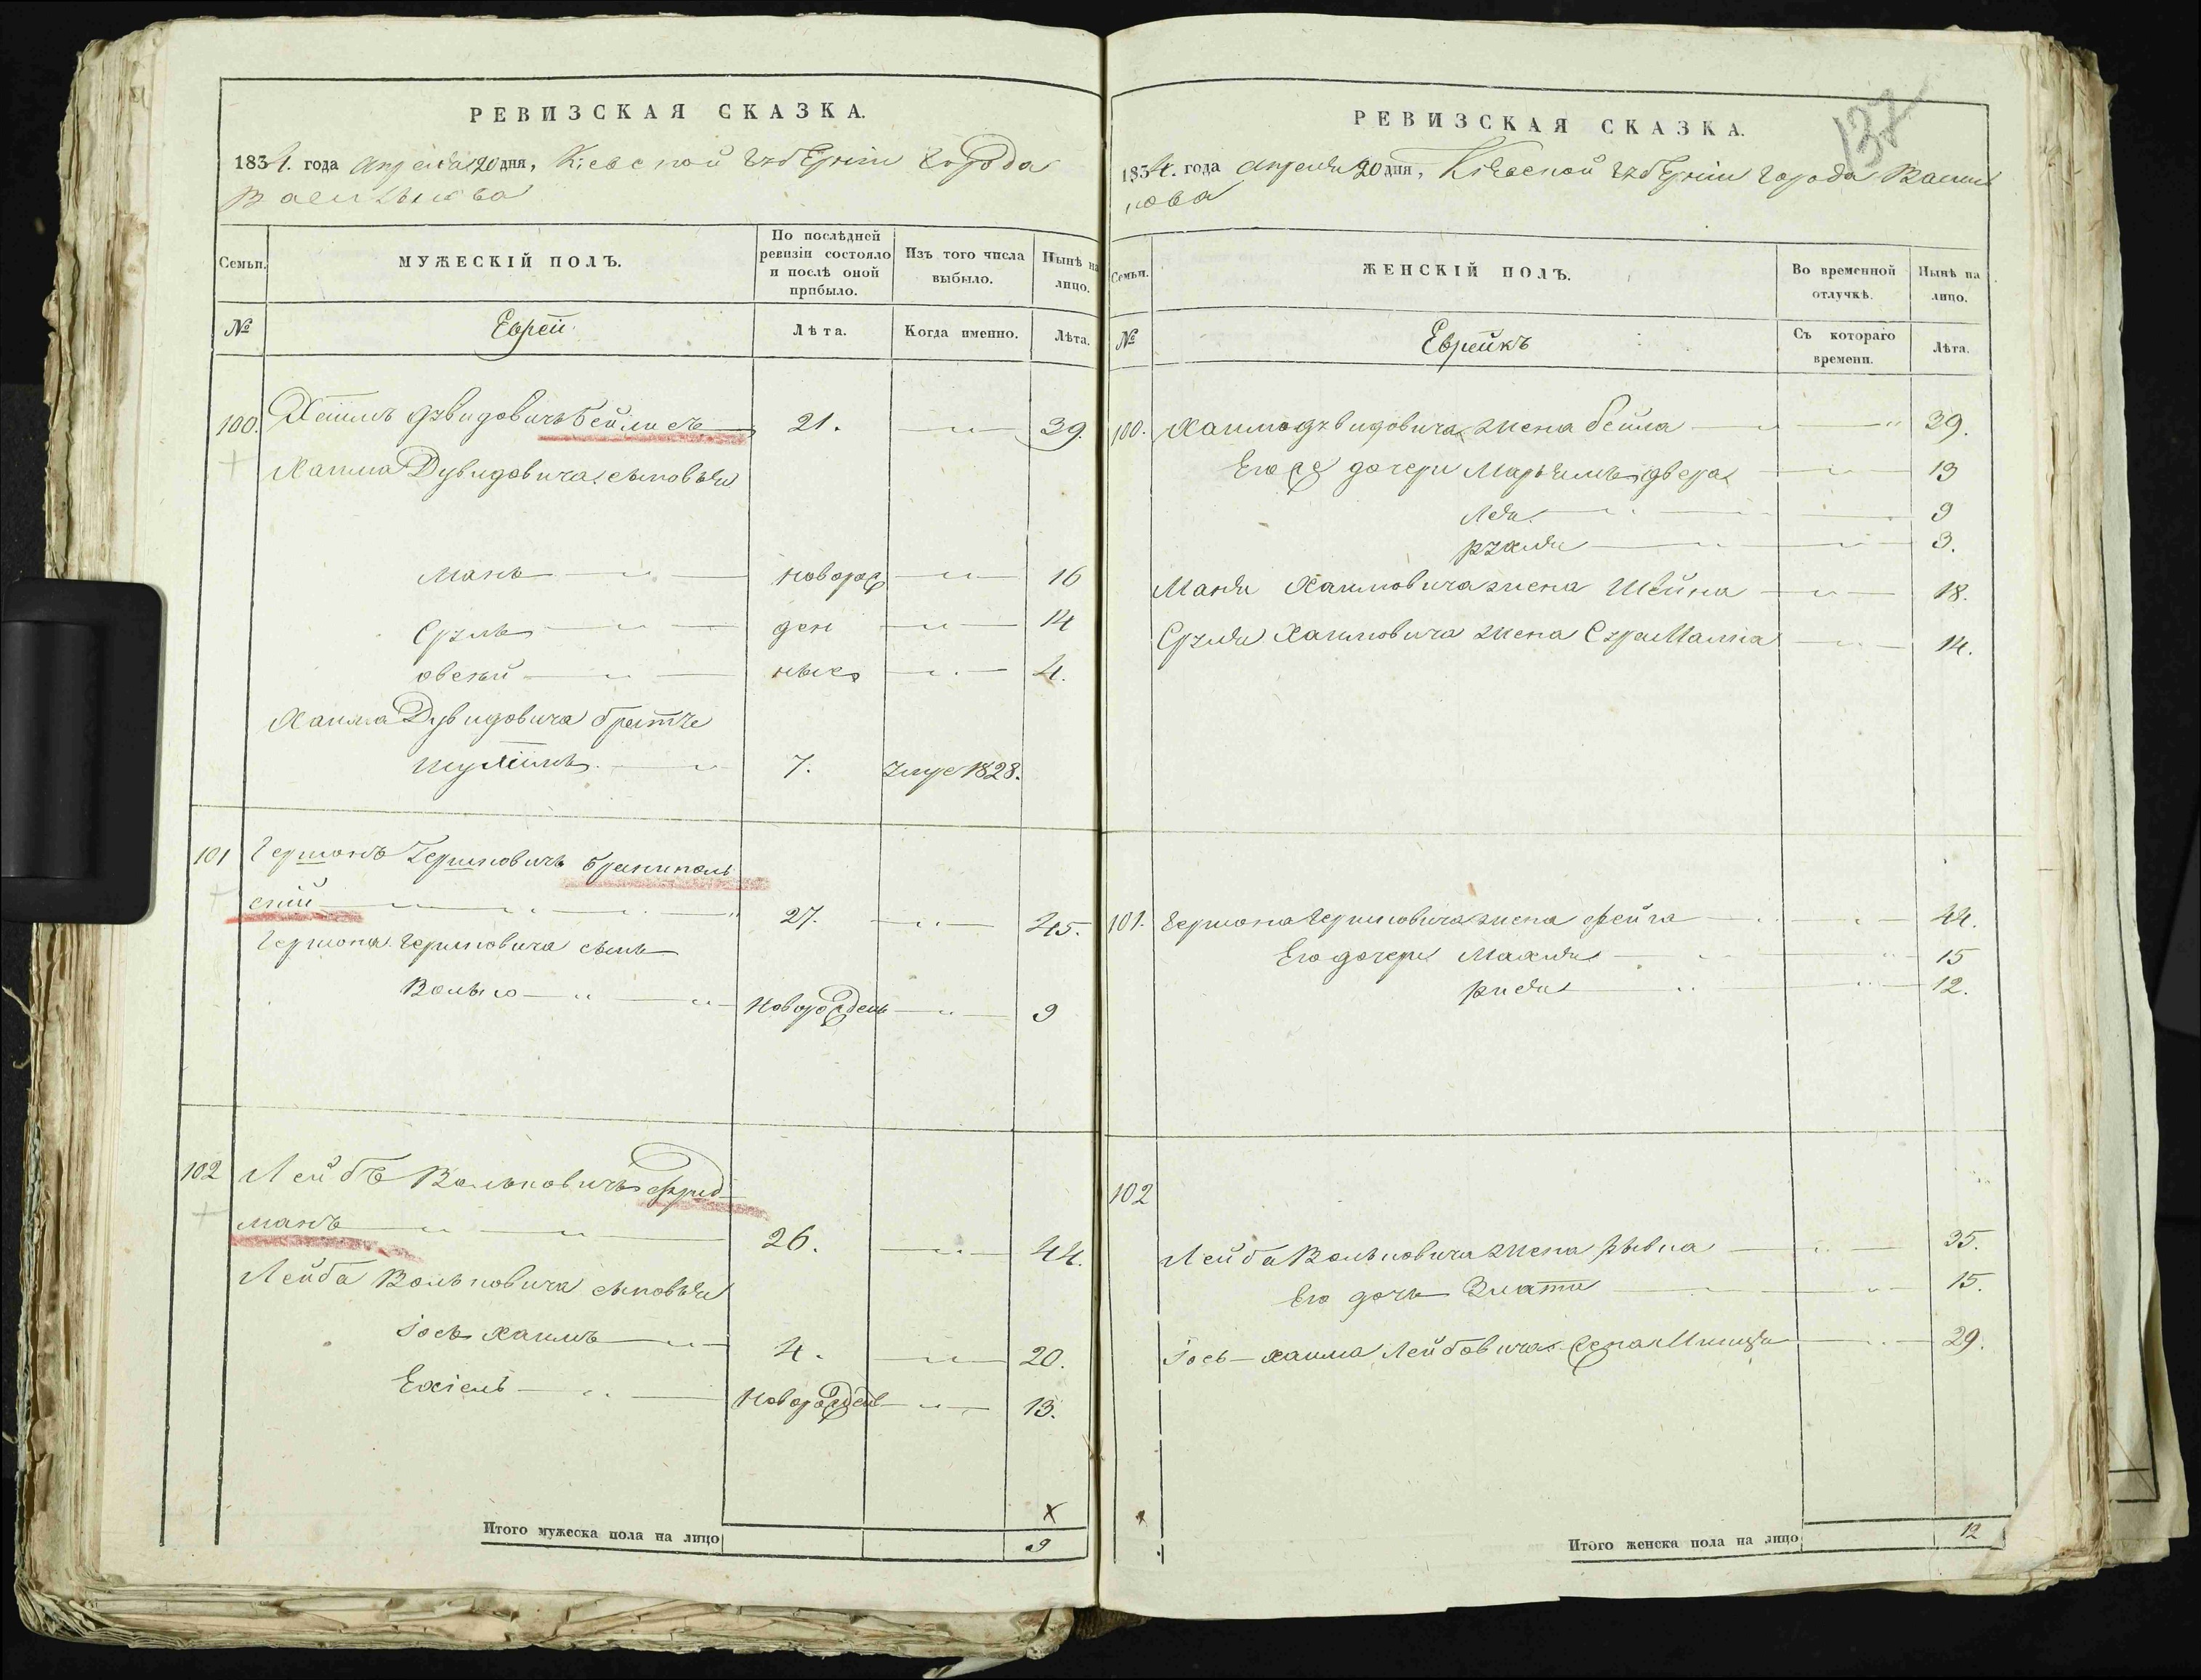 РЕВИЗСКАЯ СКАЗКА.
1834. года апреля 20 дня, Кіевской губерніи города
Василькова
Семьи.
МУЖЕСКІЙ ПОЛЪ.
По послѣдней ревизіи состояло и послѣ оной прибыло.
Изъ того числа выбыло.
Нынѣ на лицо.
№
Евреи
Лѣта.
Когда именно.
Лѣта.
100. Хаимъ Дувидовичъ Бейлисъ 21. — 39.
Хаима Дувидовича сыновья
Мань новорож 16
Сруль ден 14
Овсей ныхъ 4.
Хаима Дувидовича братъ
7. умре 1828.
101 Гершонъ Гершковичъ
ской 27. — 45.
Гершона Гершковича сынъ
Волько новорожденъ 9
102 Лейбъ Вольковичъ Фрид
манъ 26. — 44.
Лейба Вольковича сыновья
Іось Хаимъ 4. — 20.
Ехіель новорожден 13.
Х
Итого мужеска пола на лицо 9
РЕВИЗСКАЯ СКАЗКА.
137
1834. года апреля 20 дня, Кіевской губерніи города Василь
кова
Семьи.
ЖЕНСКІЙ ПОЛЪ.
Во временной отлучкѣ.
Нынѣ на лицо.
№
Еврейкъ
Съ котораго времени.
Лѣта.
100. Хаима Дувидовича жена Бейла 39.
Его дочери Марьямъ Двера 13
Лея 9
Рухля 3.
Маня Хаимовича жена Шейна 18.
Сруля Хаимовича жена 14.
101. Гершона Гершковича жена Фейга 44.
Его дочери Махля 15
12.
102
Лейба Вольковича жена Рывка 35.
Его дочь Злата 15.
Іось-Хаима Лейбовича жена 29.
х
Итого женска пола на лицо 12